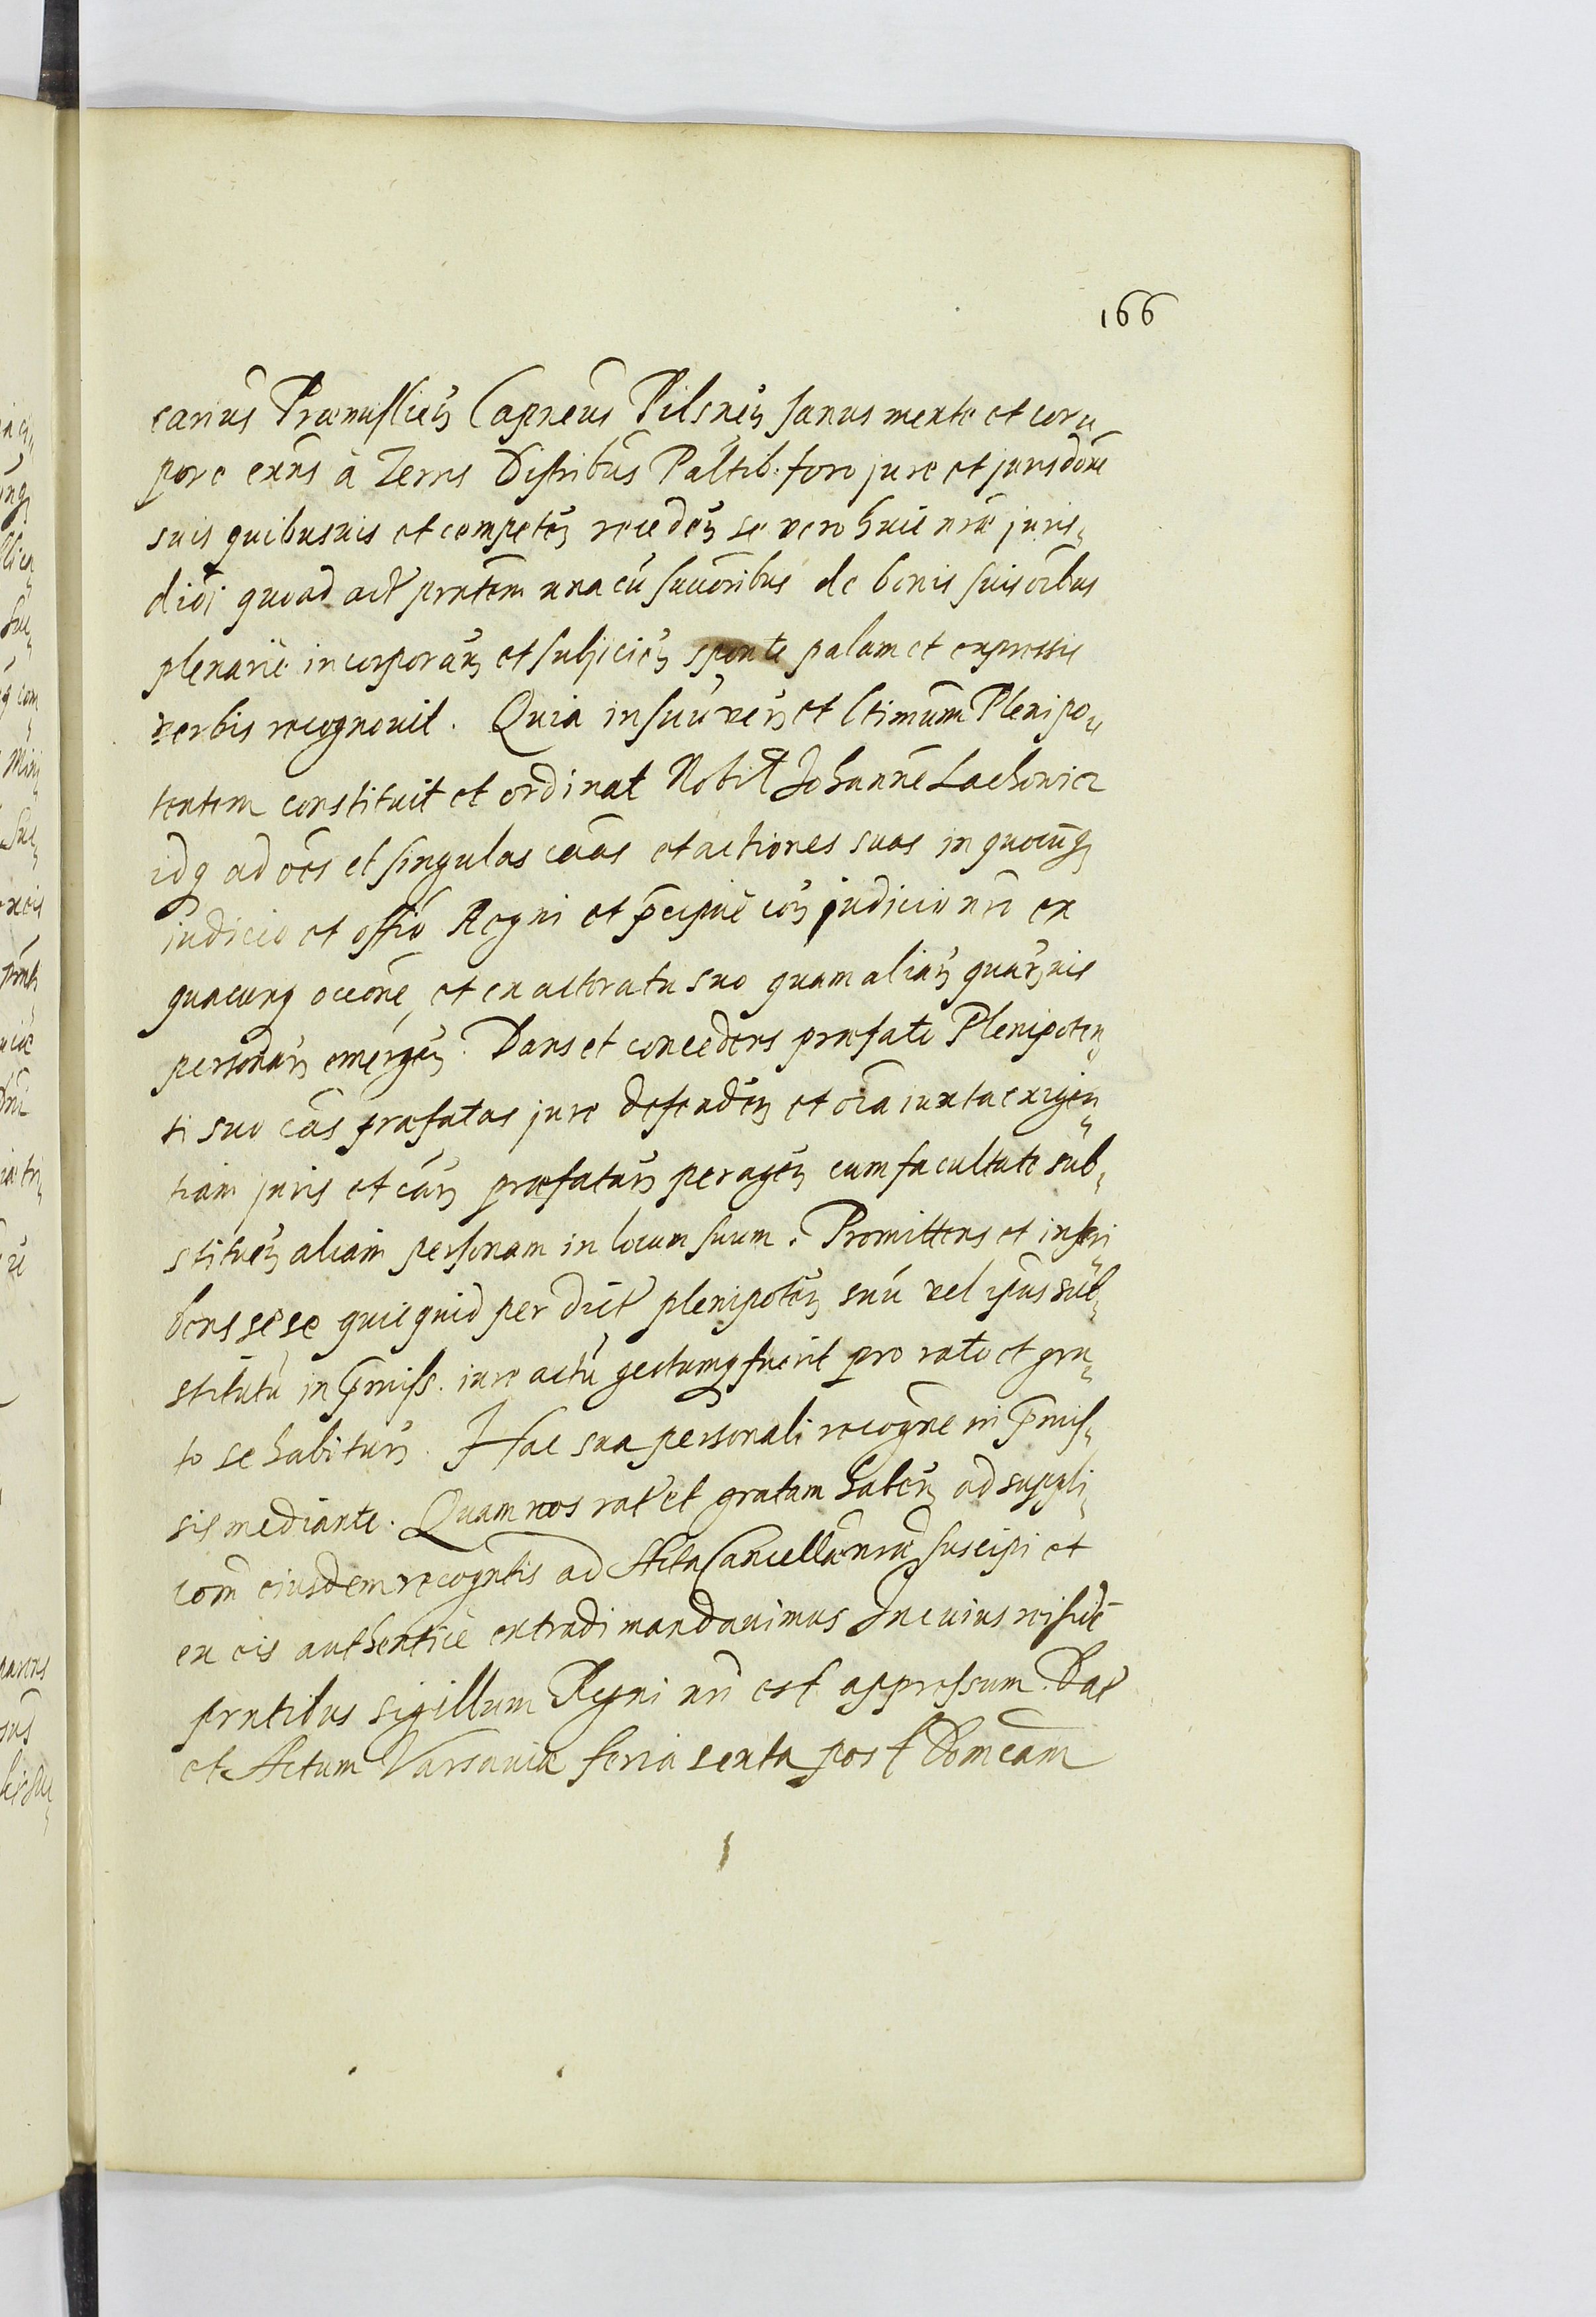 166
carius Præmislieñ Capneus Pilsneñ sanus mente et cor„
pore exñs à Terris Districtibus Paltib. foro jure et jurisdône
suis quibusvis et competeñ recedeñ se vero huic nræ juris„
dicôi quoad act prñtem una cũ succôribus de bonis suis oĩbus
plenariè incorporañ et subjicieñ sponte palam et expressis
verbis recognouit. Quia in suũ verũ et ltimum Plenipo„
tentem constituit et ordinat Nobil Johannẽ Lachowicz
idq ad oẽs et singulas cãas et actiones suas in quocũq
iudicio et offio Regni et p̃cipuè corã judicio nro ex
quacunq occõne, et ex actoratu suo quam aliarũ quarũuis
personarũ emergeñ. Dans et concedens præfato Plenipoten„
ti suo cãs præfatas jure defendeñ et oĩa iuxta exigen„
tiam juris et cãrũ præfatarũ perageñ cum facultate sub„
stitueñ aliam personam in locum suum. Promittens et inscri„
bens sese quicquid per dict plenipoteñ suũ vel ipsius sub„
stitutũ in p̃miss. iure actũ gestumq fuerit pro rato et gra„
to se habiturũ. Hac sua personali recogñe in p̃mis„
sis mediante. Quam nos rat et gratam habeñ ad suppli„
cõm eiusdem recogñtis ad Acta Cancellæ nræ suscipi et
ex eis authenticè extradi mandauimus In cuius rei fidẽ
prñtibus sigillum Regni nri est appressum. Dat
et Actum Varsauiæ feria sexta post Domcam